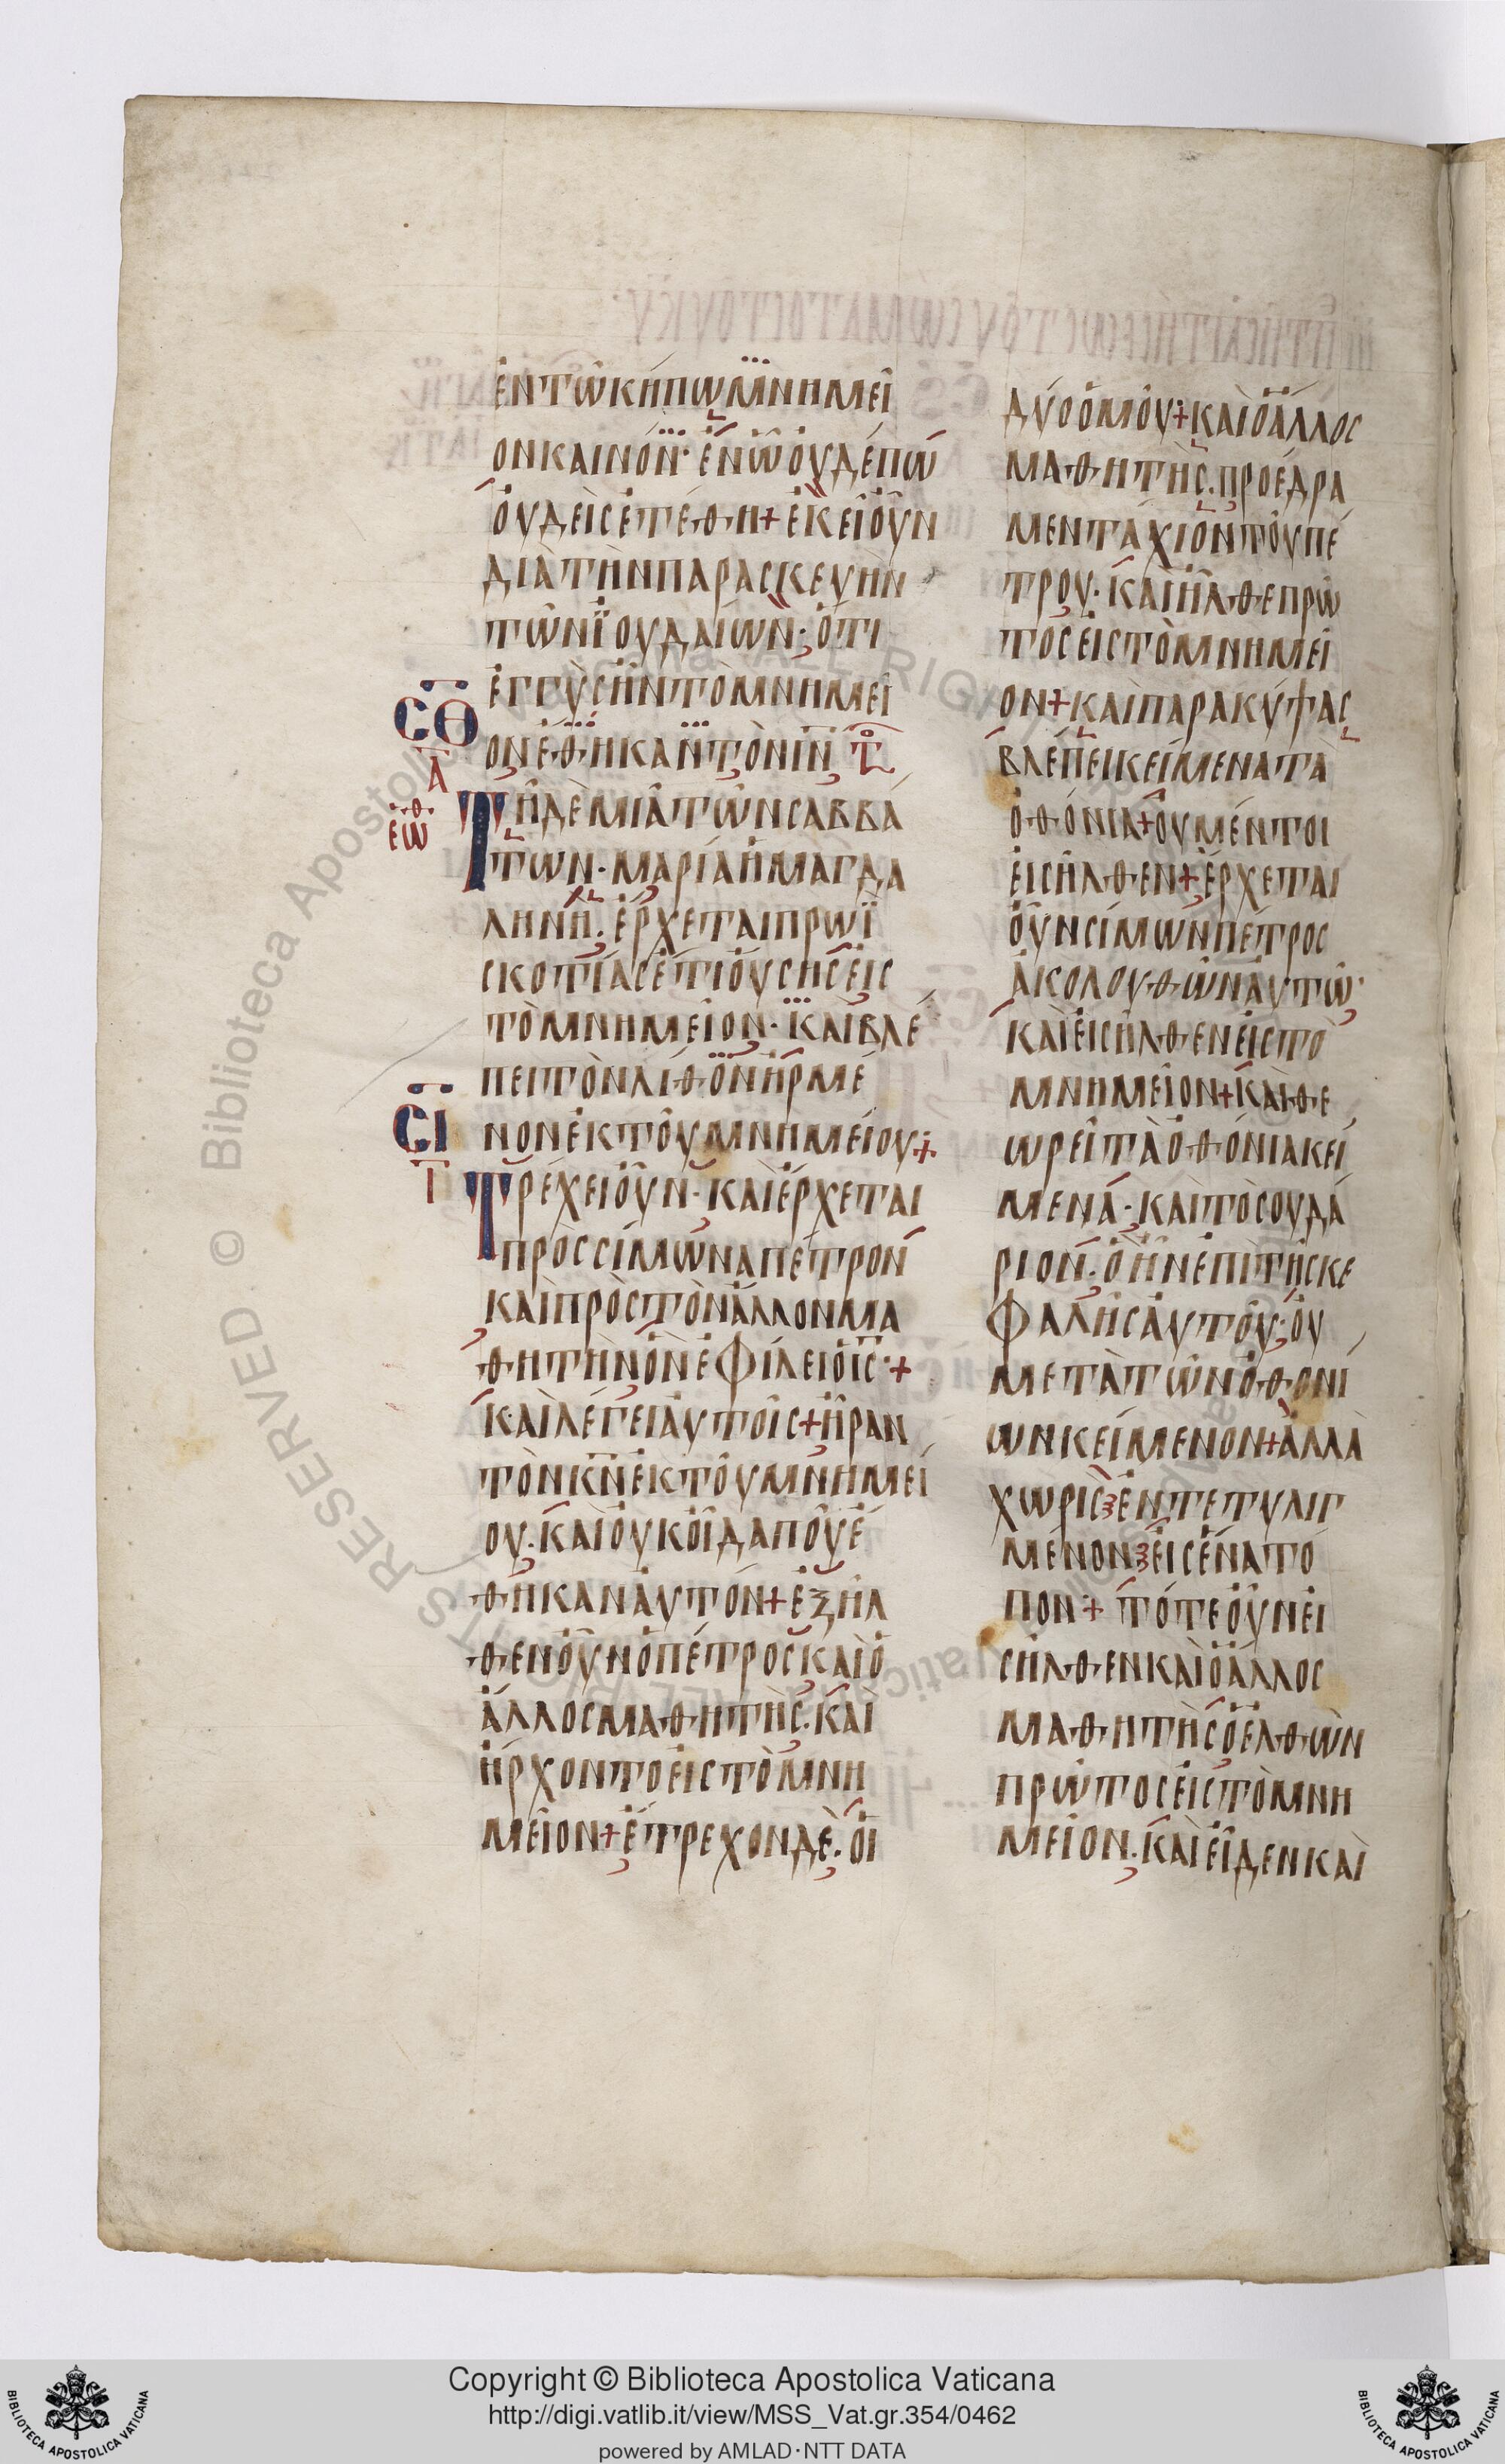 ἐν τῶ κήπω μνημεῖ
ον καινόν· ἐν ὧ οὐδέπω
οὐδεὶς ἐτέθη + ἐκεῖ οὖν
διὰ τὴν παρασκευὴν
τῶν ϊουδαίων· ὅτι
ἐγγὺς ἦν τὸ μνημεῖ
ον ἔθηκαν τὸν ΙΝ
ϹΘ
Α
ἑω
Τῆ δὲ μιᾶ τῶν σαββά
των· μαρία ἡ μαγδα
ληνὴ· ἔρχεται πρωῒ
σκοτίας ἔτι οὔσης εἰς
τὸ μνημεῖον· καὶ βλέ
πει τὸν λίθον ἠρμέ
νον ἐκ τοῦ μνημείου +
ϹΙ
Ι
Τρέχει οὖν· καὶ ἔρχεται
πρὸς σίμωνα πέτρον
καὶ πρὸς τὸν ἄλλον μα
θητὴν ὃν ἐφίλει ὁ ΙϹ· +
καὶ λέγει αὐτοῖς + ἦραν
τὸν ΚΝ ἐκ τοῦ μνημεί
ου· καὶ οὐκ οἶδα ποῦ ἔ
θηκαν αὐτόν + ἐξῆλ
θεν οὖν ὁ πέτρος καὶ ὁ
ἄλλος μαθητὴς· καὶ
ἤρχοντο εἰς τὸ μνη
μεῖον + ἔτρεχον δὲ· οἱ
δύο ὁμοῦ + καὶ ὁ ἄλλος
μαθητὴς· προέδρα
μεν τάχιον τοῦ πέ
τρου· καὶ ἦλθε πρῶ
τος εἰς τὸ μνημεῖ
ον + καὶ παρακύψας
βλέπει κείμενα τὰ
ὀθόνια + οὐ μέντοι
εἰσῆλθεν + ἔρχεται
οὖν σίμων πέτρος
ἀκολουθῶν αὐτῶ·
καὶ εἰσῆλθεν εἰς τὸ
μνημεῖον + καὶ θε
ωρεῖ τὰ ὀθόνια κεί
μενά· καὶ τὸ σουδά
ριον· ὃ ἦν ἐπὶ τῆς κε
φαλῆς αὐτοῦ· οὐ
μετὰ τῶν ὀθονί
ων κείμενον + ἀλλὰ
χωρὶς ἐντετυλιγ
μένον εἰς ἕνα τό
πον + τότε οὖν εἰ
σῆλθεν καὶ ὁ ἄλλος
μαθητὴς ὁ ἐλθὼν
πρῶτος εἰς τὸ μνη
μεῖον· καὶ εἶδεν καὶ
Copyright © Biblioteca Apostolica Vaticana
http://digi.vatlib.it/view/MSS_Vat.gr.354/0462
powered by AMLAD·NTT DATA
BIBLIOTECA APOSTOLICA VATICANA
BIBLIOTECA APOSTOLICA VATICANA